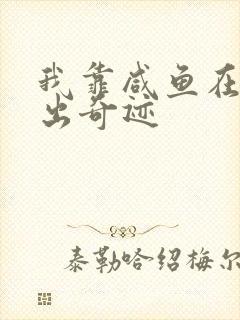 我靠咸鱼在
出奇迹
泰勒哈绍梅尔